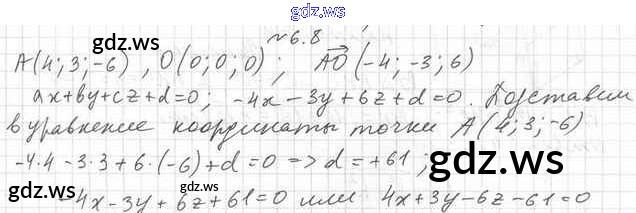 gdz.ws
№6.8
gdz.ws gdz.ws
A(4; 3; -6) , O(0; 0; 0) ; AO (-4; -3; 6)
ax+by+cz+d=0; -4x-3y+6z+d=0. Подставим
в уравнение координаты точки A(4; 3; -6)
-4·4-3·3+6·(-6)+d=0 => d=+61;
gdz.ws
-4x-3y+6z+61=0 или 4x+3y-6z-61=0
gdz.ws gdz.ws